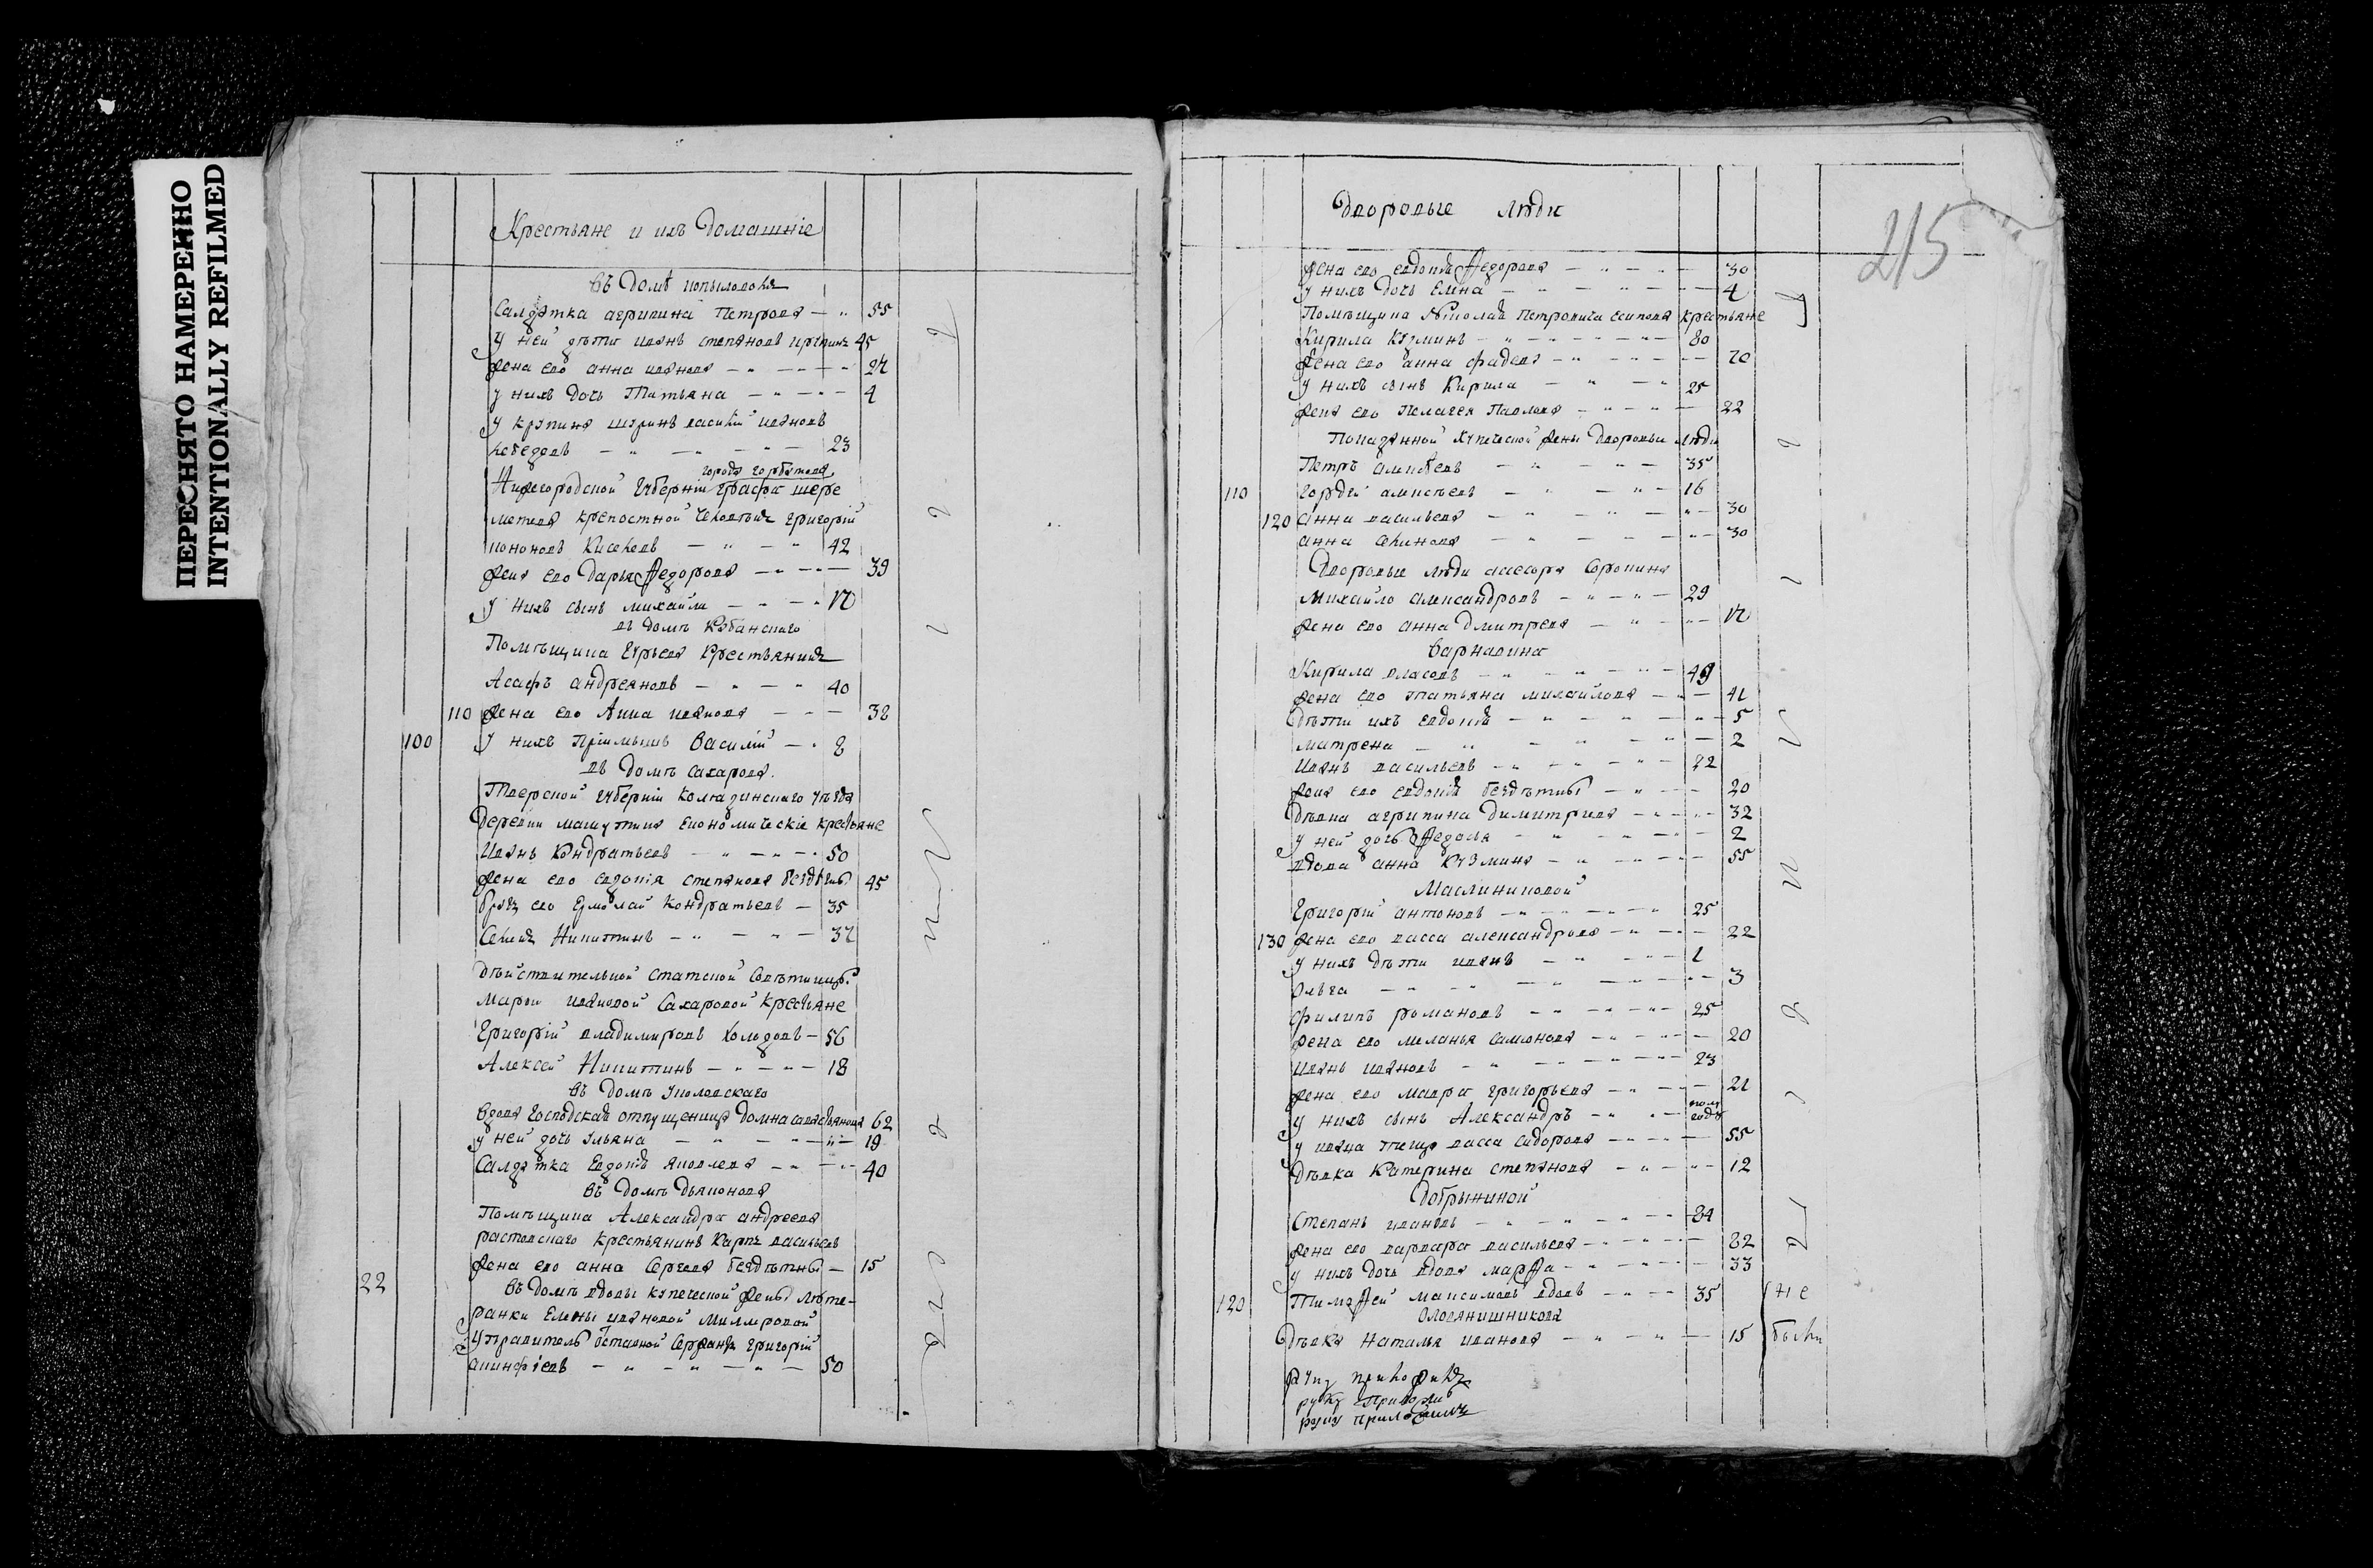 ПЕРЕСНЯТО НАМЕРЕННО
INTENTIONALLY REFILMED
Крестьяне и ихъ домашніе
въ домѣ
Салдатка агрипина Петрова — 55
У ней дѣти иванъ степановъ 45
жена его анна иванова — 27
у нихъ дочь Татьяна — 4
у шуринъ василій ивановъ
— 23
города горбатова
Нижегородской губерніи графа шере
метева крепостной Григорій
Киселевъ — 42
жена его Дарья Федорова — 39
у нихъ сынъ михайла — 17
въ домѣ
Помѣщика Гурьева Крестьянинъ
Асафъ андреяновъ — 40
110 жена его Анна иванова — 38
100 у нихъ Пріимышъ Василій — 8
въ домѣ сахарова.
Тверской губерніи Колязинскаго уѣзда
деревни економическіе крестьяне
Иванъ Кондратьевъ — 50
жена его евдокія степанова бездѣтны 45
братъ его Ермолай Кондратьевъ — 35
Никитинъ — 37
дѣйствительной статской совѣтницы
Марьи ивановой Сахаровой крестьяне
Григорій владимировъ холодовъ — 56
Алексей Никитинъ — 18
въ домѣ
вдова господская отпущеница домна 62
у ней дочь ульяна — 19
Салдатка Евдокія яковлева — 40
въ домѣ дьяконова
Помѣщика Александра андреева
растовскаго крестьянинъ Карпъ васильевъ
жена его анна Сергеева бездѣтны — 15
22 въ домѣ вдовы купеческой жены люте-
ранки Елены ивановой Миллеровой
Управитель отставной Сержантъ Григорій
акинфіевъ — 50
Дворовые люди
215
жена его евдокія Федорова — 30
у нихъ дочь Елена — 4
Помѣщика Николая Петровича есипова крестьяне
Кирила Кузминъ — 80
жена его анна фадеева — 70
у нихъ сынъ Кирила — 25
жена его Пелагея Павлова — 22
Показанной купеческой жены дворовые люди
Петръ алексѣевъ — 35
110 гордѣй алексѣевъ — 16
120 анна васильева — 30
анна семенова — 30
Дворовые люди асесора Сорокина
Михайло александровъ — 29
жена его анна дмитрева — 17
Варнавина
Кирила власовъ — 49
жена его татьяна михайлова — 41
дѣти ихъ евдокія — 5
матрена — 2
Иванъ васильевъ — 22
жена его евдокія бездѣтны — 20
дѣвка агрипина димитриева — 32
у ней дочь Федосья — 2
вдова анна кузмина — 55
Маслениковой
Григорій антоновъ — 25
130 жена его васса александрова — 22
у нихъ дѣти иванъ — 1
Ольга — 3
филипъ романовъ — 25
жена его меланья самонова — 20
иванъ ивановъ — 23
жена его мавра григорьева — 21
у нихъ сынъ Александръ — полгода
у ивана теща васса сидорова — 55
дѣвка Катерина степанова — 12
Добрыниной
Степанъ ивановъ — 84
жена его варвара васильева — 82
у нихъ дочь вдова марфа — 33
120 Тимофей максимовъ вдовъ — 35 не
Оловянишникова
дѣвка наталья иванова — 15 были
руку приложилъ
руку приложилъ
руку приложилъ